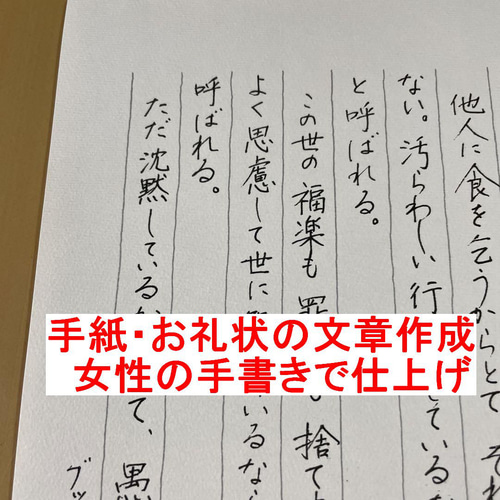 他人に食を乞うからとて、それ
ない。汚らわしい行 ているな
と呼ばれる。
この世の福楽も罪 捨て
よく思慮して世に いるなら
呼ばれる。
ただ沈黙しているか て、愚
ブッ
手紙・お礼状の文章作成
女性の手書きで仕上げ